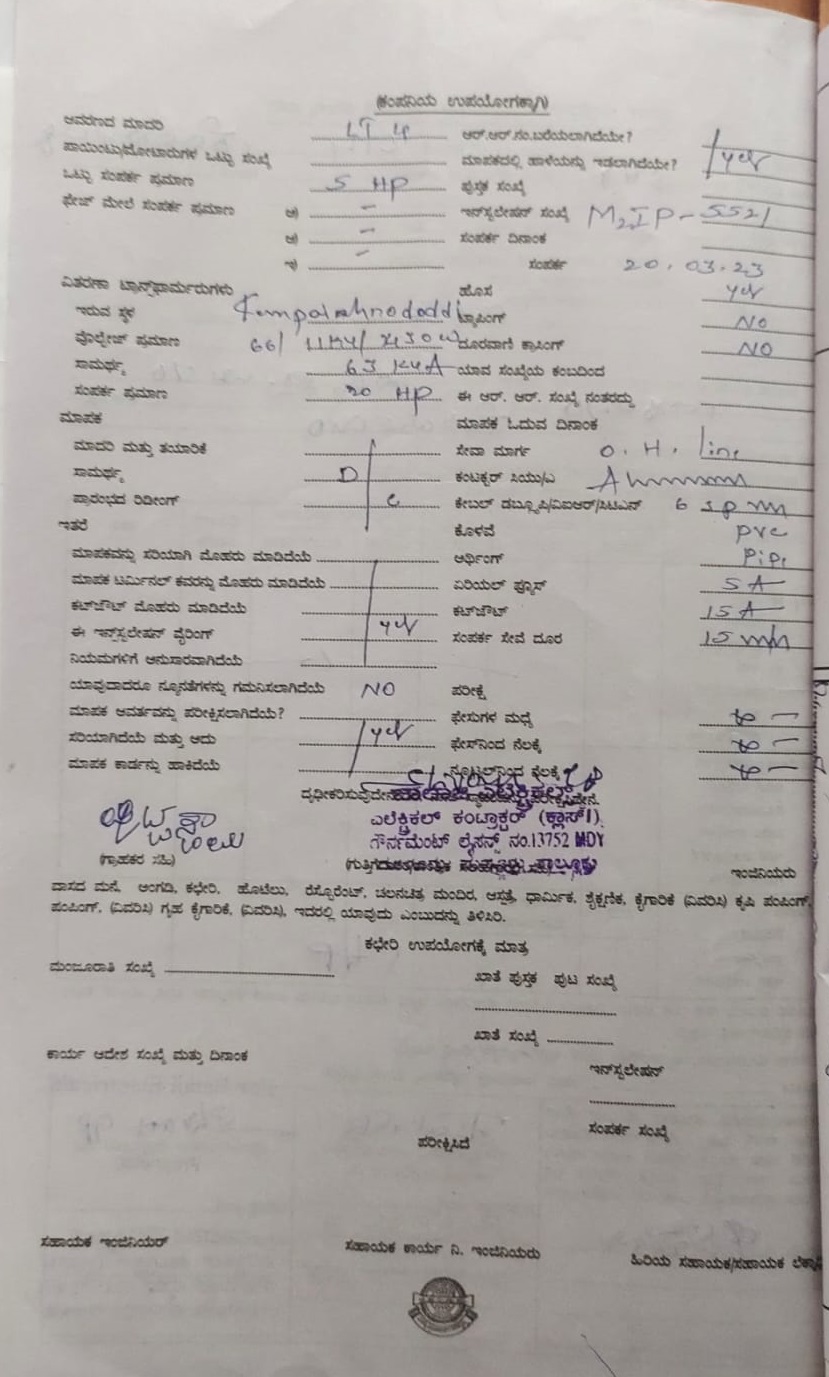 (ಕಂಪನಿಯ ಉಪಯೋಗಕ್ಕಾಗಿ)
ಆವರಣದ ಮಾದರಿ LT 4 ಆರ್.ಆರ್.ಸಂ.ಬರೆಯಲಾಗಿದೆಯೇ?
ಪಾಯಿಂಟು/ಮೋಟಾರುಗಳ ಒಟ್ಟು ಸಂಖ್ಯೆ ಮಾಪಕದಲ್ಲಿ ಹಾಳೆಯನ್ನು ಇಡಲಾಗಿದೆಯೇ? yes
ಒಟ್ಟು ಸಂಪರ್ಕ ಪ್ರಮಾಣ 5 HP ಪುಸ್ತಕ ಸಂಖ್ಯೆ
ಫೇಜ್ ಮೇಲೆ ಸಂಪರ್ಕ ಪ್ರಮಾಣ ಅ) — ಇನ್‌ಸ್ಟಲೇಷನ್ ಸಂಖ್ಯೆ M2IP-5521
ಆ) — ಸಂಪರ್ಕ ದಿನಾಂಕ
ಇ) — ಸಂಪರ್ಕ 20.03.23
ವಿತರಣಾ ಟ್ರಾನ್ಸ್‌ಫಾರ್ಮರುಗಳು ಹೊಸ yes
ಇರುವ ಸ್ಥಳ ಟ್ಯಾಪಿಂಗ್ NO
ವೊಲ್ಟೇಜ್ ಪ್ರಮಾಣ 66/ 11KV/ ದೂರವಾಣಿ ಕ್ರಾಸಿಂಗ್ NO
ಸಾಮರ್ಥ್ಯ 63 KVA ಯಾವ ಸಂಖ್ಯೆಯ ಕಂಬದಿಂದ
ಸಂಪರ್ಕ ಪ್ರಮಾಣ HP ಈ ಆರ್. ಆರ್. ಸಂಖ್ಯೆ ನಂತರದ್ದು
ಮಾಪಕ ಮಾಪಕ ಓದುವ ದಿನಾಂಕ
ಮಾದರಿ ಮತ್ತು ತಯಾರಿಕೆ ಸೇವಾ ಮಾರ್ಗ O. H. line
ಸಾಮರ್ಥ್ಯ D ಕಂಟಕ್ಟರ್ ಸಿಯು/ಎ
ಪ್ರಾರಂಭದ ರಿಡೀಂಗ್ C ಕೇಬಲ್ ಡಬ್ಲ್ಯೂಪಿ/ವಿಐಆರ್/ಸಿಟಿಎಸ್ 6
ಇತರೆ ಕೊಳವೆ PVC
ಮಾಪಕವನ್ನು ಸರಿಯಾಗಿ ಮೊಹರು ಮಾಡಿದೆಯೆ ಅರ್ಥಿಂಗ್ Pipe
ಮಾಪಕ ಟರ್ಮಿನಲ್ ಕವರನ್ನು ಮೊಹರು ಮಾಡಿದೆಯೆ ಏರಿಯಲ್ ಫ್ಯೂಸ್ 5 A
ಕಟ್‌ಔಟ್ ಮೊಹರು ಮಾಡಿದೆಯೆ ಕಟ್‌ಔಟ್ 15 A
ಈ ಇನ್ಸ್ಟಲೇಷನ್ ವೈರಿಂಗ್ yes ಸಂಪರ್ಕ ಸೇವೆ ದೂರ 15
ನಿಯಮಗಳಿಗೆ ಅನುಸಾರವಾಗಿದೆಯೆ
ಯಾವುದಾದರೂ ನ್ಯೂನತೆಗಳನ್ನು ಗಮನಿಸಲಾಗಿದೆಯೆ NO ಪರೀಕ್ಷೆ
ಮಾಪಕ ಆವರ್ತವನ್ನು ಪರೀಕ್ಷಿಸಲಾಗಿದೆಯೆ? ಫೇಸುಗಳ ಮಧ್ಯೆ
ಸರಿಯಾಗಿದೆಯೆ ಮತ್ತು ಅದು yes ಫೇಸ್‌ನಿಂದ ನೆಲಕ್ಕೆ
ಮಾಪಕ ಕಾರ್ಡನ್ನು ಹಾಕಿದೆಯೆ ನ್ಯೂಟ್ರಲ್‌ನಿಂದ ನೆಲಕ್ಕೆ
ಎಲೆಕ್ಟ್ರಿಕಲ್ ಕಂಟ್ರಾಕ್ಟರ್ (ಕ್ಲಾಸ್‌I)
ಗೌರ್ನಮೆಂಟ್ ಲೈಸನ್ಸ್ ನಂ.13752 MDY
(ಗ್ರಾಹಕರ ಸಹಿ) ಇಂಜಿನಿಯರು
ವಾಸದ ಮನೆ, ಅಂಗಡಿ, ಕಛೇರಿ, ಹೊಟೆಲು, ರೆಸ್ಟೋರೆಂಟ್, ಚಲನಚಿತ್ರ ಮಂದಿರ, ಆಸ್ಪತ್ರೆ, ಧಾರ್ಮಿಕ, ಶೈಕ್ಷಣಿಕ, ಕೈಗಾರಿಕೆ (ವಿವರಿಸಿ) ಕೃಷಿ ಪಂಪಿಂಗ್,
ಪಂಪಿಂಗ್, (ವಿವರಿಸಿ) ಗೃಹ ಕೈಗಾರಿಕೆ, (ವಿವರಿಸಿ), ಇದರಲ್ಲಿ ಯಾವುದು ಎಂಬುದನ್ನು ತಿಳಿಸಿರಿ.
ಕಛೇರಿ ಉಪಯೋಗಕ್ಕೆ ಮಾತ್ರ
ಮಂಜೂರಾತಿ ಸಂಖ್ಯೆ ಖಾತೆ ಪುಸ್ತಕ ಪುಟ ಸಂಖ್ಯೆ
ಖಾತೆ ಸಂಖ್ಯೆ
ಕಾರ್ಯ ಆದೇಶ ಸಂಖ್ಯೆ ಮತ್ತು ದಿನಾಂಕ
ಇನ್‌ಸ್ಟಲೇಷನ್
ಸಂಪರ್ಕ ಸಂಖ್ಯೆ
ಪರೀಕ್ಷಿಸಿದೆ
ಸಹಾಯಕ ಇಂಜಿನಿಯರ್ ಸಹಾಯಕ ಕಾರ್ಯ ನಿ. ಇಂಜಿನಿಯರು ಹಿರಿಯ ಸಹಾಯಕ/ಸಹಾಯಕ